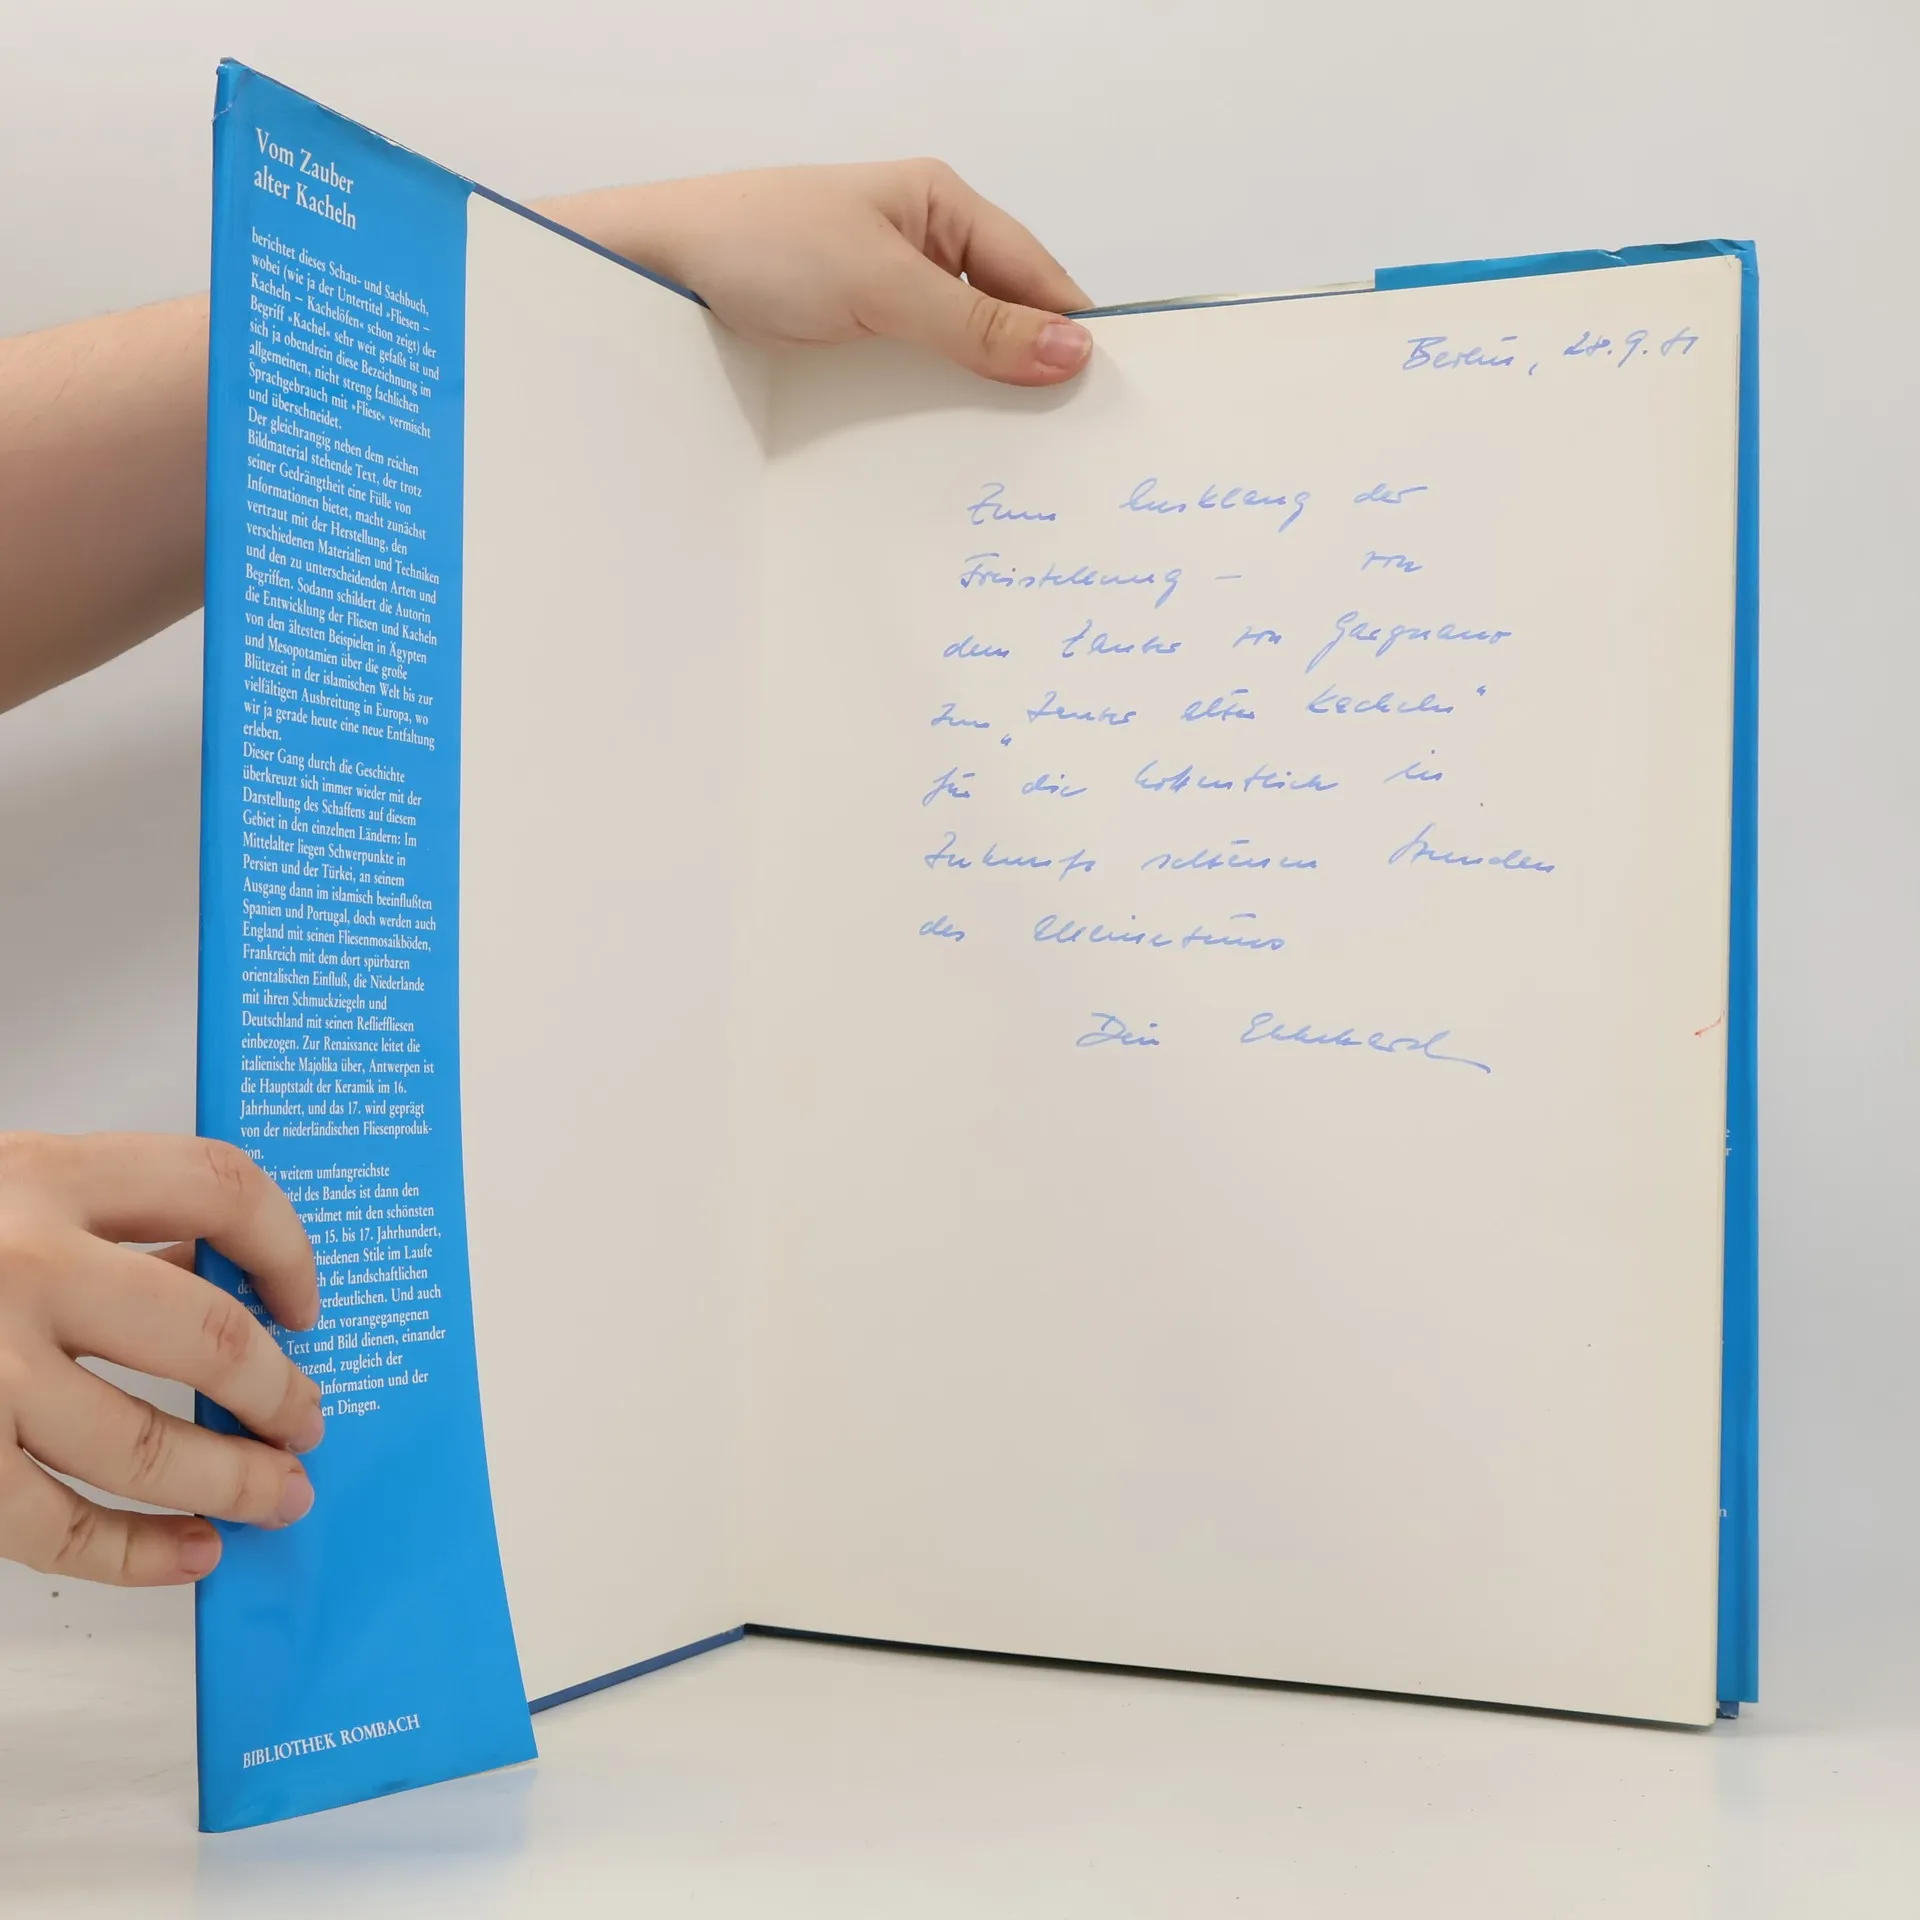 Vom Zauber
alter Kacheln
berichtet dieses Schau- und Sachbuch,
wobei (wie ja der Untertitel »Fliesen –
Kacheln – Kachelöfen« schon zeigt) der
Begriff »Kachel« sehr weit gefaßt ist und
sich ja obendrein diese Bezeichnung im
allgemeinen, nicht streng fachlichen
Sprachgebrauch mit »Fliese« vermischt
und überschneidet.
Der gleichrangig neben dem reichen
Bildmaterial stehende Text, der trotz
seiner Gedrängtheit eine Fülle von
Informationen bietet, macht zunächst
vertraut mit der Herstellung, den
verschiedenen Materialien und Techniken
und den zu unterscheidenden Arten und
Begriffen. Sodann schildert die Autorin
die Entwicklung der Fliesen und Kacheln
von den ältesten Beispielen in Ägypten
und Mesopotamien über die große
Blütezeit in der islamischen Welt bis zur
vielfältigen Ausbreitung in Europa, wo
wir ja gerade heute eine neue Entfaltung
erleben.
Dieser Gang durch die Geschichte
überkreuzt sich immer wieder mit der
Darstellung des Schaffens auf diesem
Gebiet in den einzelnen Ländern: Im
Mittelalter liegen Schwerpunkte in
Persien und der Türkei, an seinem
Ausgang dann im islamisch beeinflußten
Spanien und Portugal, doch werden auch
England mit seinen Fliesenmosaikböden,
Frankreich mit dem dort spürbaren
orientalischen Einfluß, die Niederlande
mit ihren Schmuckziegeln und
Deutschland mit seinen Reflieffliesen
einbezogen. Zur Renaissance leitet die
italienische Majolika über, Antwerpen ist
die Hauptstadt der Keramik im 16.
Jahrhundert, und das 17. wird geprägt
von der niederländischen Fliesenproduk-
tion.
bei weitem umfangreichste
des Bandes ist dann den
gewidmet mit den schönsten
15. bis 17. Jahrhundert,
Stile im Laufe
die landschaftlichen
verdeutlichen. Und auch
den vorangegangenen
Text und Bild dienen, einander
zugleich der
Information und der
Dingen.
BIBLIOTHEK ROMBACH
Berlin, 28.9.81
Zum Ausklang der
Freistellung – von
dem Zauber von Gargnano
zum „Zauber alter Kacheln“
für die hoffentlich in
Zukunft schönen Stunden
des
Dein Ekkehard